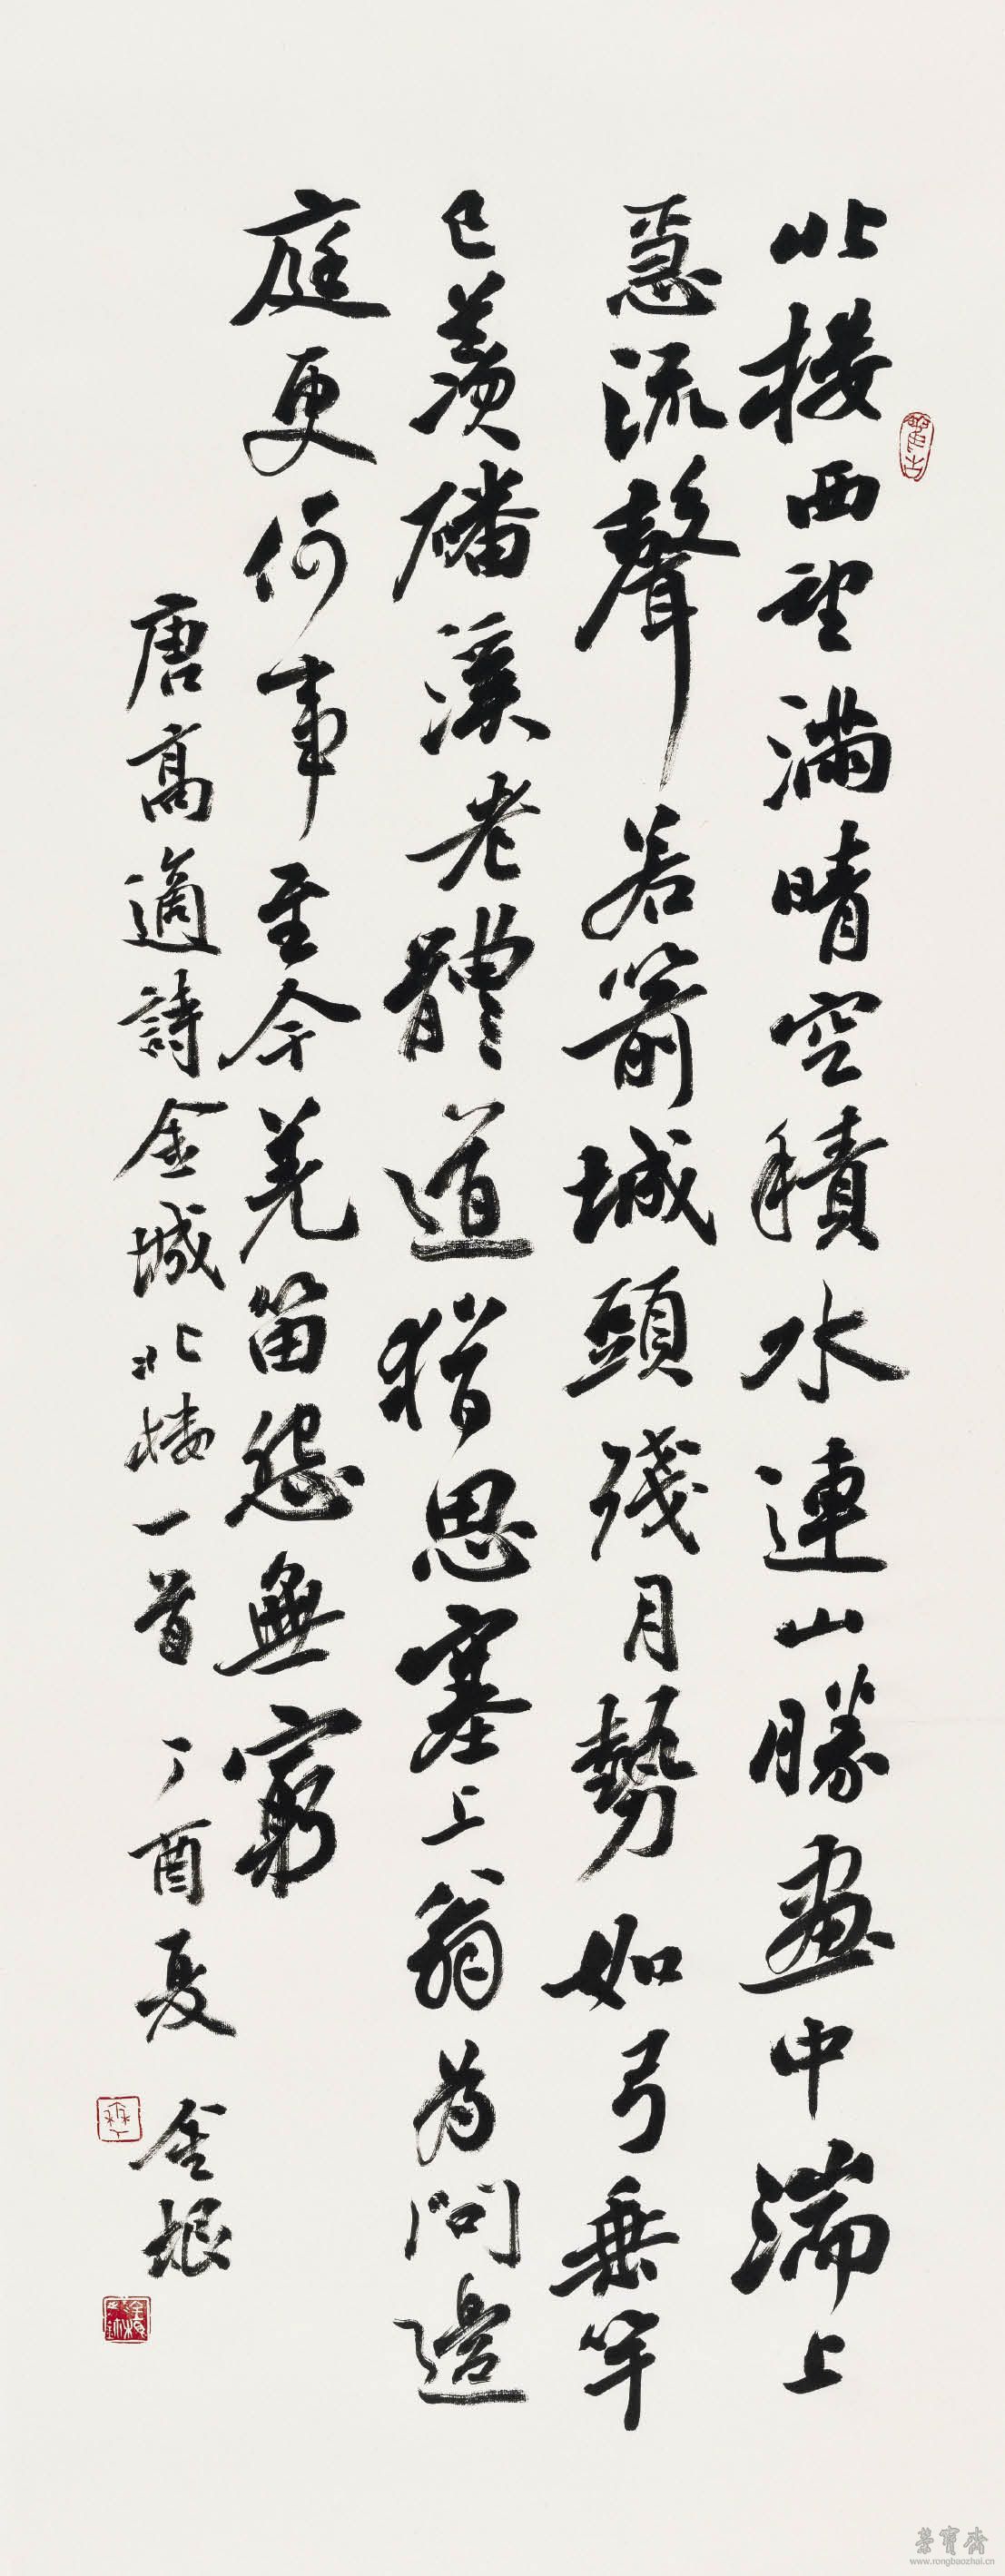 北楼西望滿晴空積水連山勝畫中湍上
急流聲若箭城頭殘月勢如弓垂竿
已羨磻溪老體道猶思塞上翁為問邊
庭更何事至今羌笛怨無窮
唐高適詩金城北楼一首 丁酉夏 金根
榮寶齋
www.rongbaozhai.cn